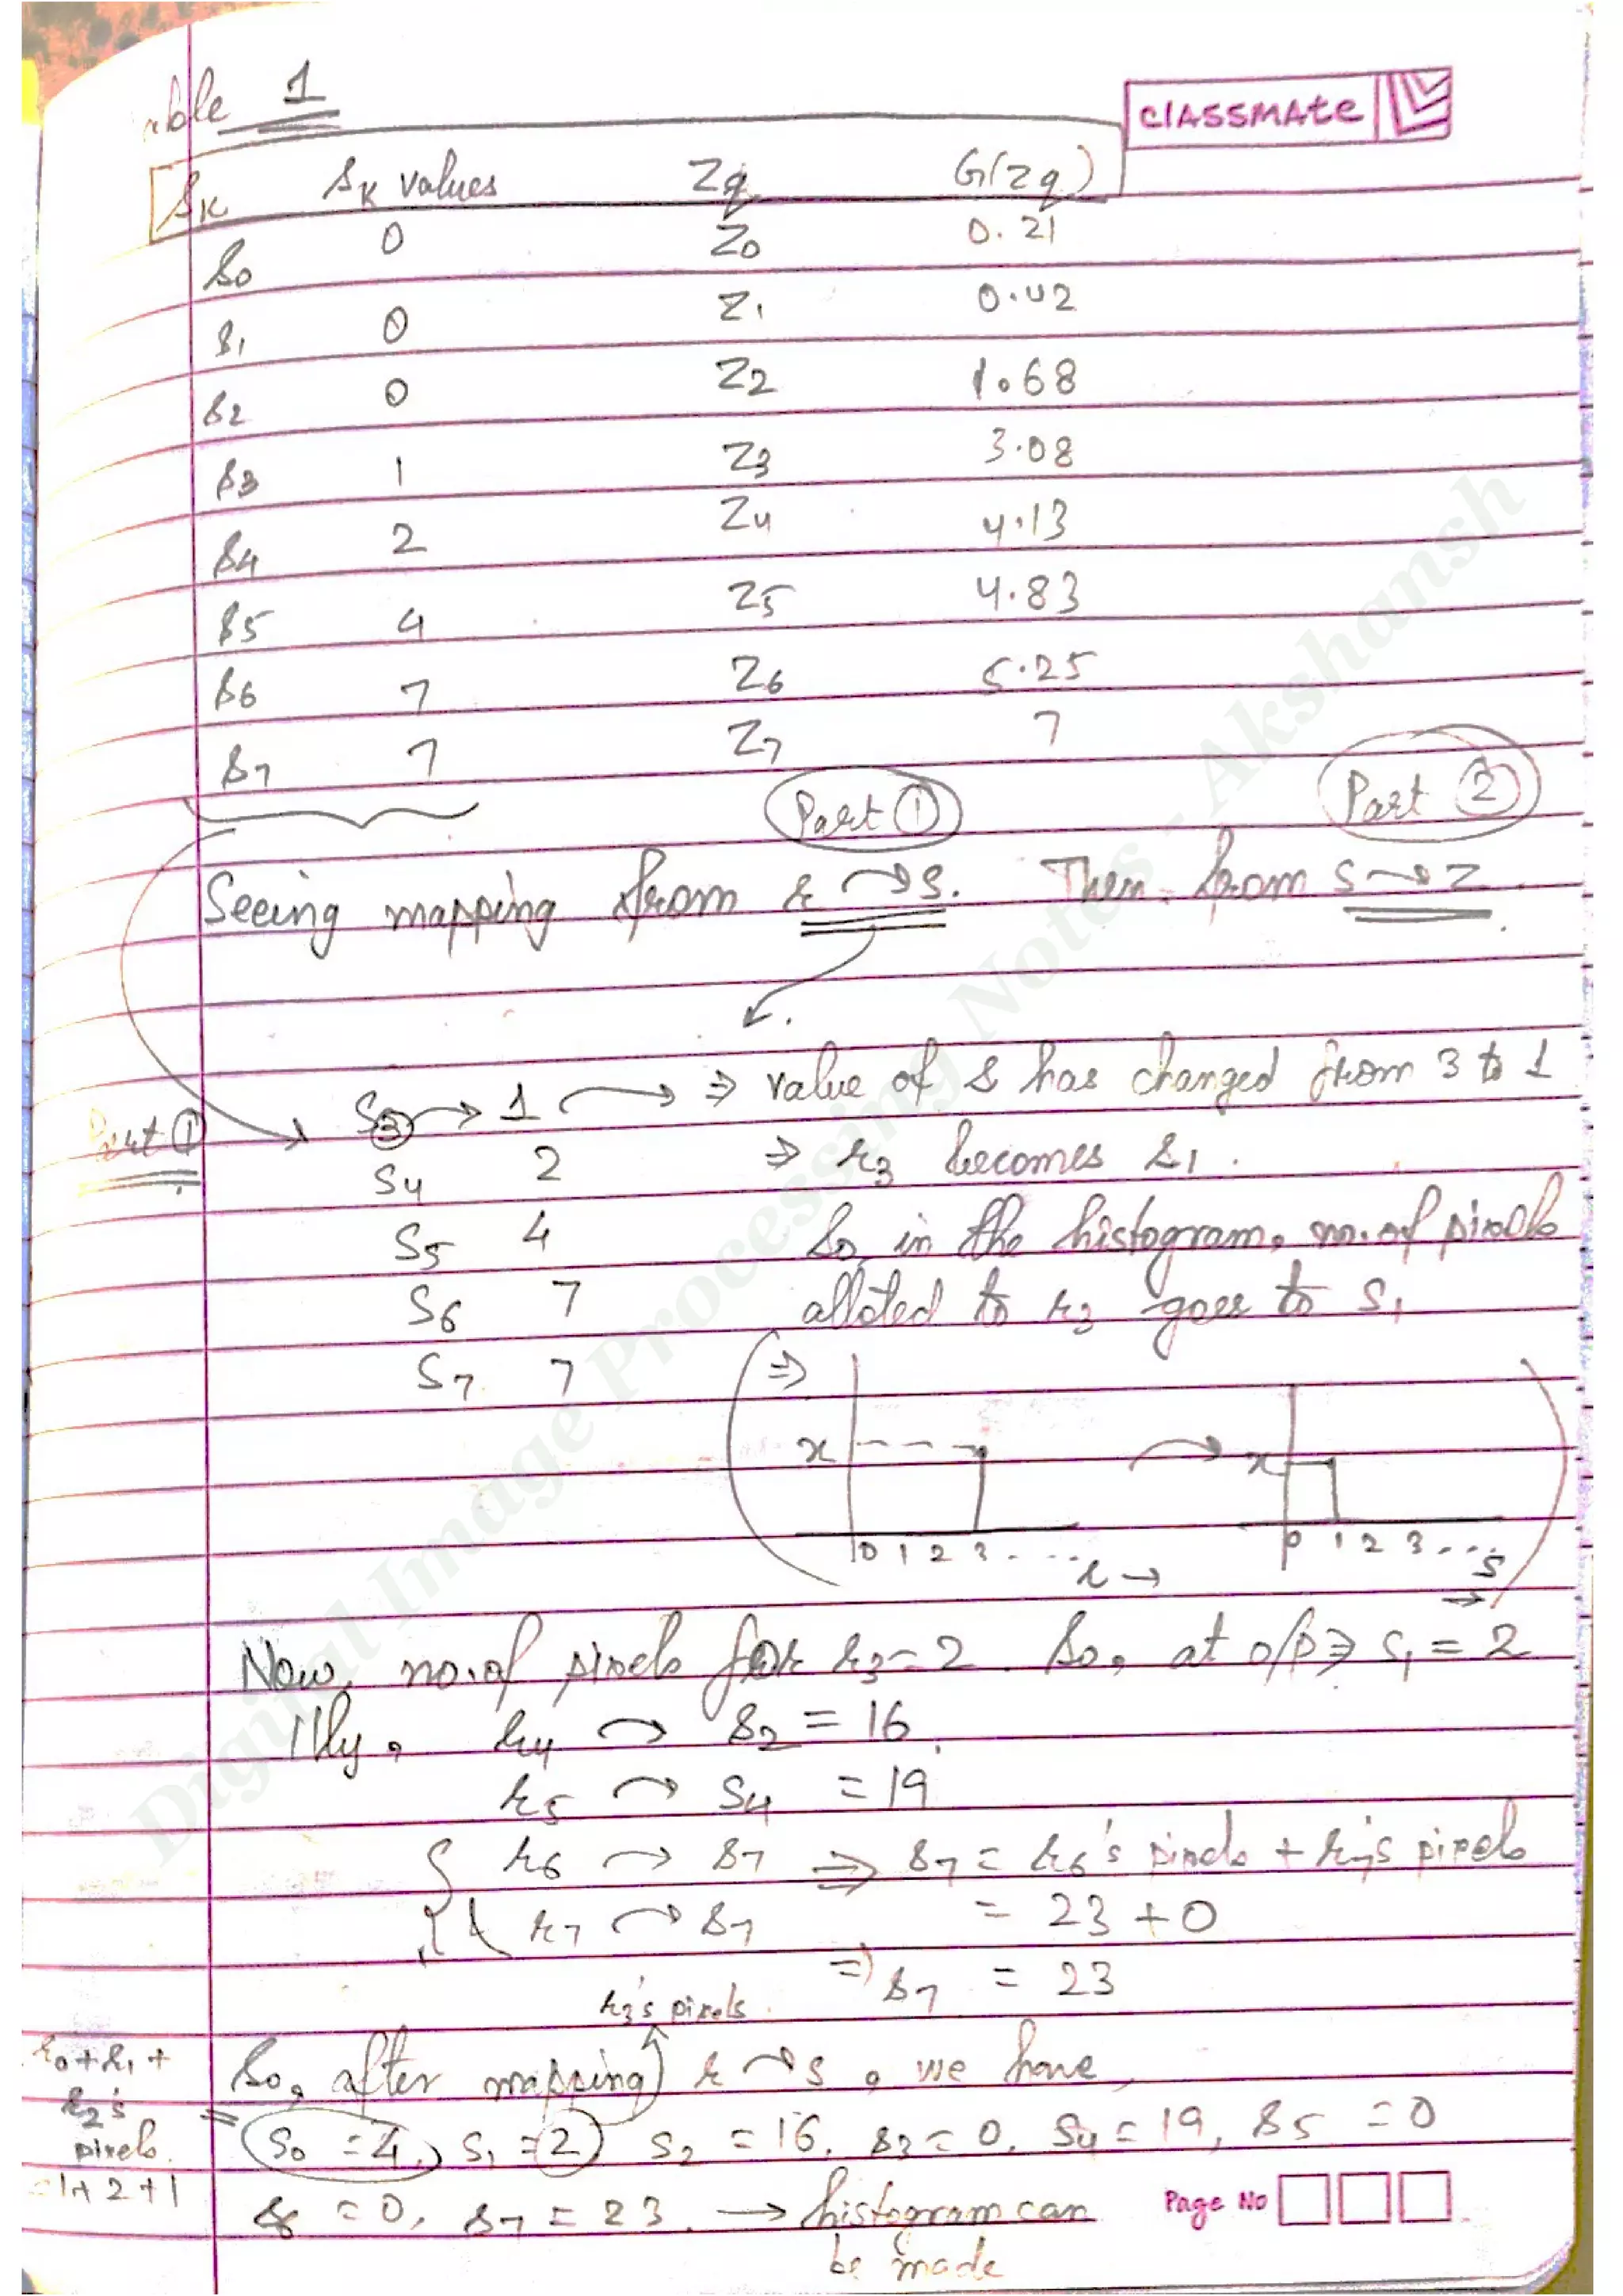 able 1
classmate
sk sk values Zq G(Zq)
s0 0 Z0 0.21
s1 0 Z1 0.42
s2 0 Z2 1.68
s3 1 Z3 3.08
s4 2 Z4 4.13
s5 4 Z5 4.83
s6 7 Z6 5.25
s7 7 Z7 7
Part ① Part ②
Seeing mapping from r → s. Then from s → z.
Part ① S3 → 1 → ⇒ value of s has changed from 3 to 1
S4 2 ⇒ r3 becomes s1.
S5 4 So, in the histogram, no. of pixels
S6 7 alloted to r3 goes to S1
S7 7 ⇒
x x
0 1 2 3 .... r → 0 1 2 3 ... s →
Now, no. of pixels for r3 = 2. So, at o/p ⇒ s1 = 2
||ly, r4 → s2 = 16.
r5 → s4 = 19
r6 → s7 ⇒ s7 = r6's pixels + r7's pixels
r7 → s7 = 23 + 0
⇒ s7 = 23
r3's pixels.
r0 + r1 + r2's pixels. = 1 + 2 + 1
So, after mapping r → s, we have,
s0 = 4, s1 = 2 s2 = 16, s3 = 0, s4 = 19, s5 = 0
s6 = 0, s7 = 23. → histogram can
be made
Page No
Digital Image Processing Notes - Akshansh